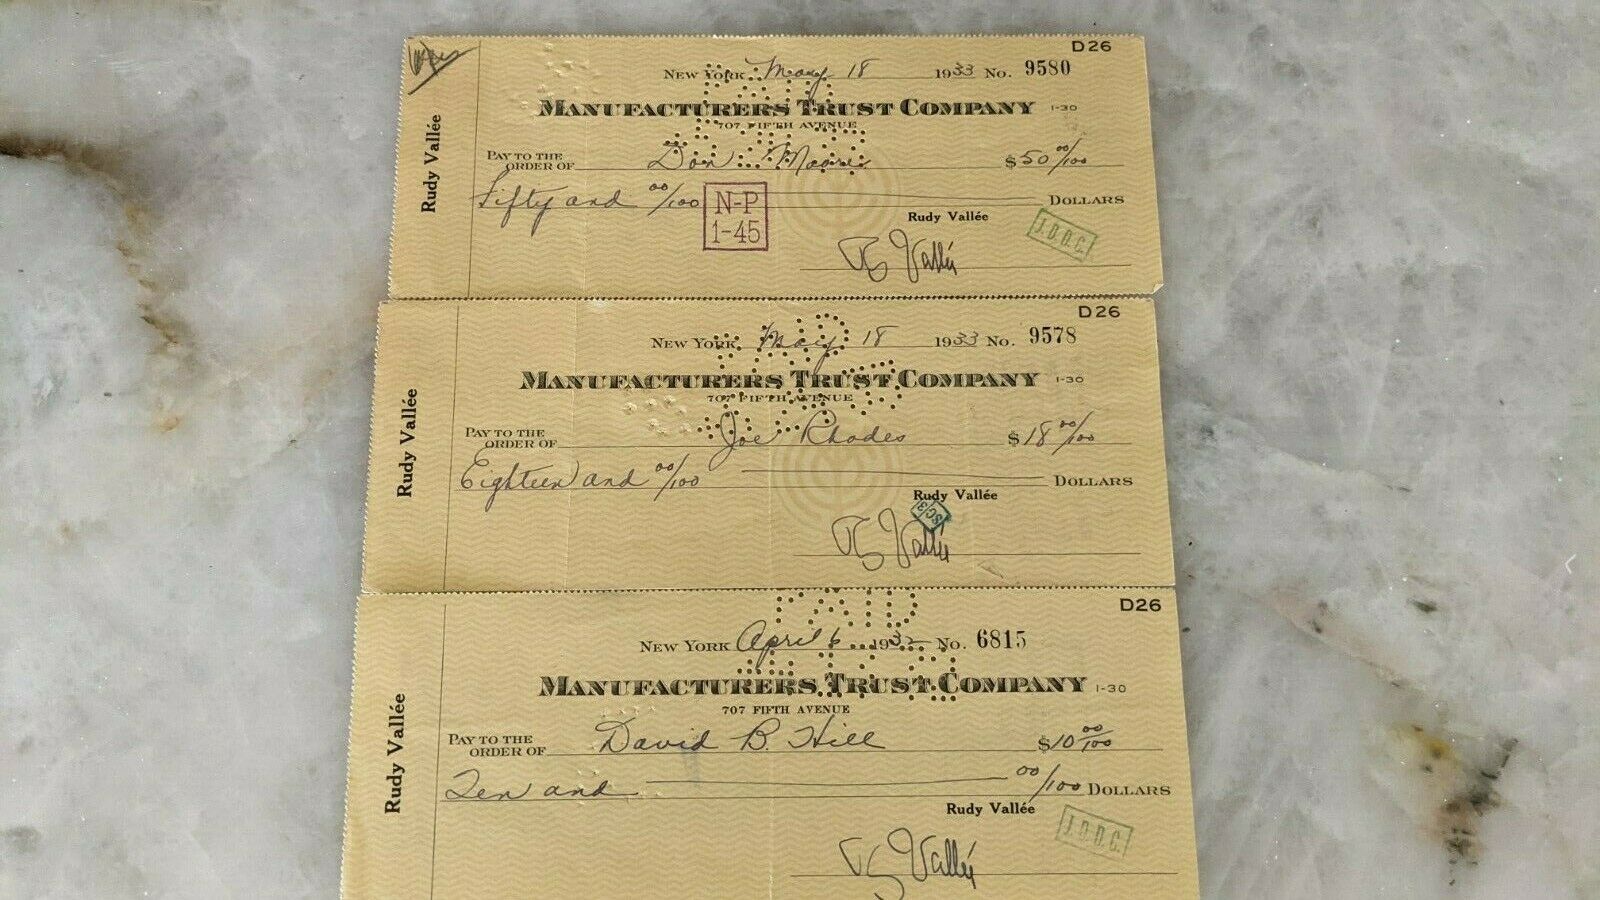 D26
NEW YORK May 18 1933 No. 9580
MANUFACTURERS TRUST COMPANY 1-30
707 FIFTH AVENUE
PAY TO THE ORDER OF Don Moore $50 00/100
Fifty and 00/100 DOLLARS
N-P
1-45
Rudy Vallée
J.D.D.C.
Rudy Vallée
Rudy Vallée
D26
NEW YORK May 18 1933 No. 9578
MANUFACTURERS TRUST COMPANY 1-30
707 FIFTH AVENUE
PAY TO THE ORDER OF Joe Rhodes $18 00/100
Eighteen and 00/100 DOLLARS
Rudy Vallée
Rudy Vallée
Rudy Vallée
PAID
D26
NEW YORK April 6 1932 No. 6815
MANUFACTURERS TRUST COMPANY 1-30
707 FIFTH AVENUE
PAY TO THE ORDER OF David B. Hill $10 00/100
Ten and 00/100 DOLLARS
Rudy Vallée
J.D.D.C.
Rudy Vallée
Rudy Vallée